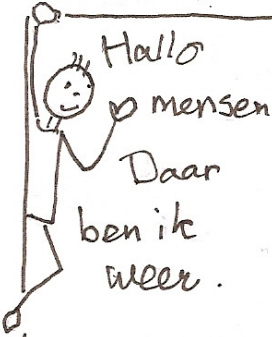 Hallo
mensen
Daar
ben ik
weer.